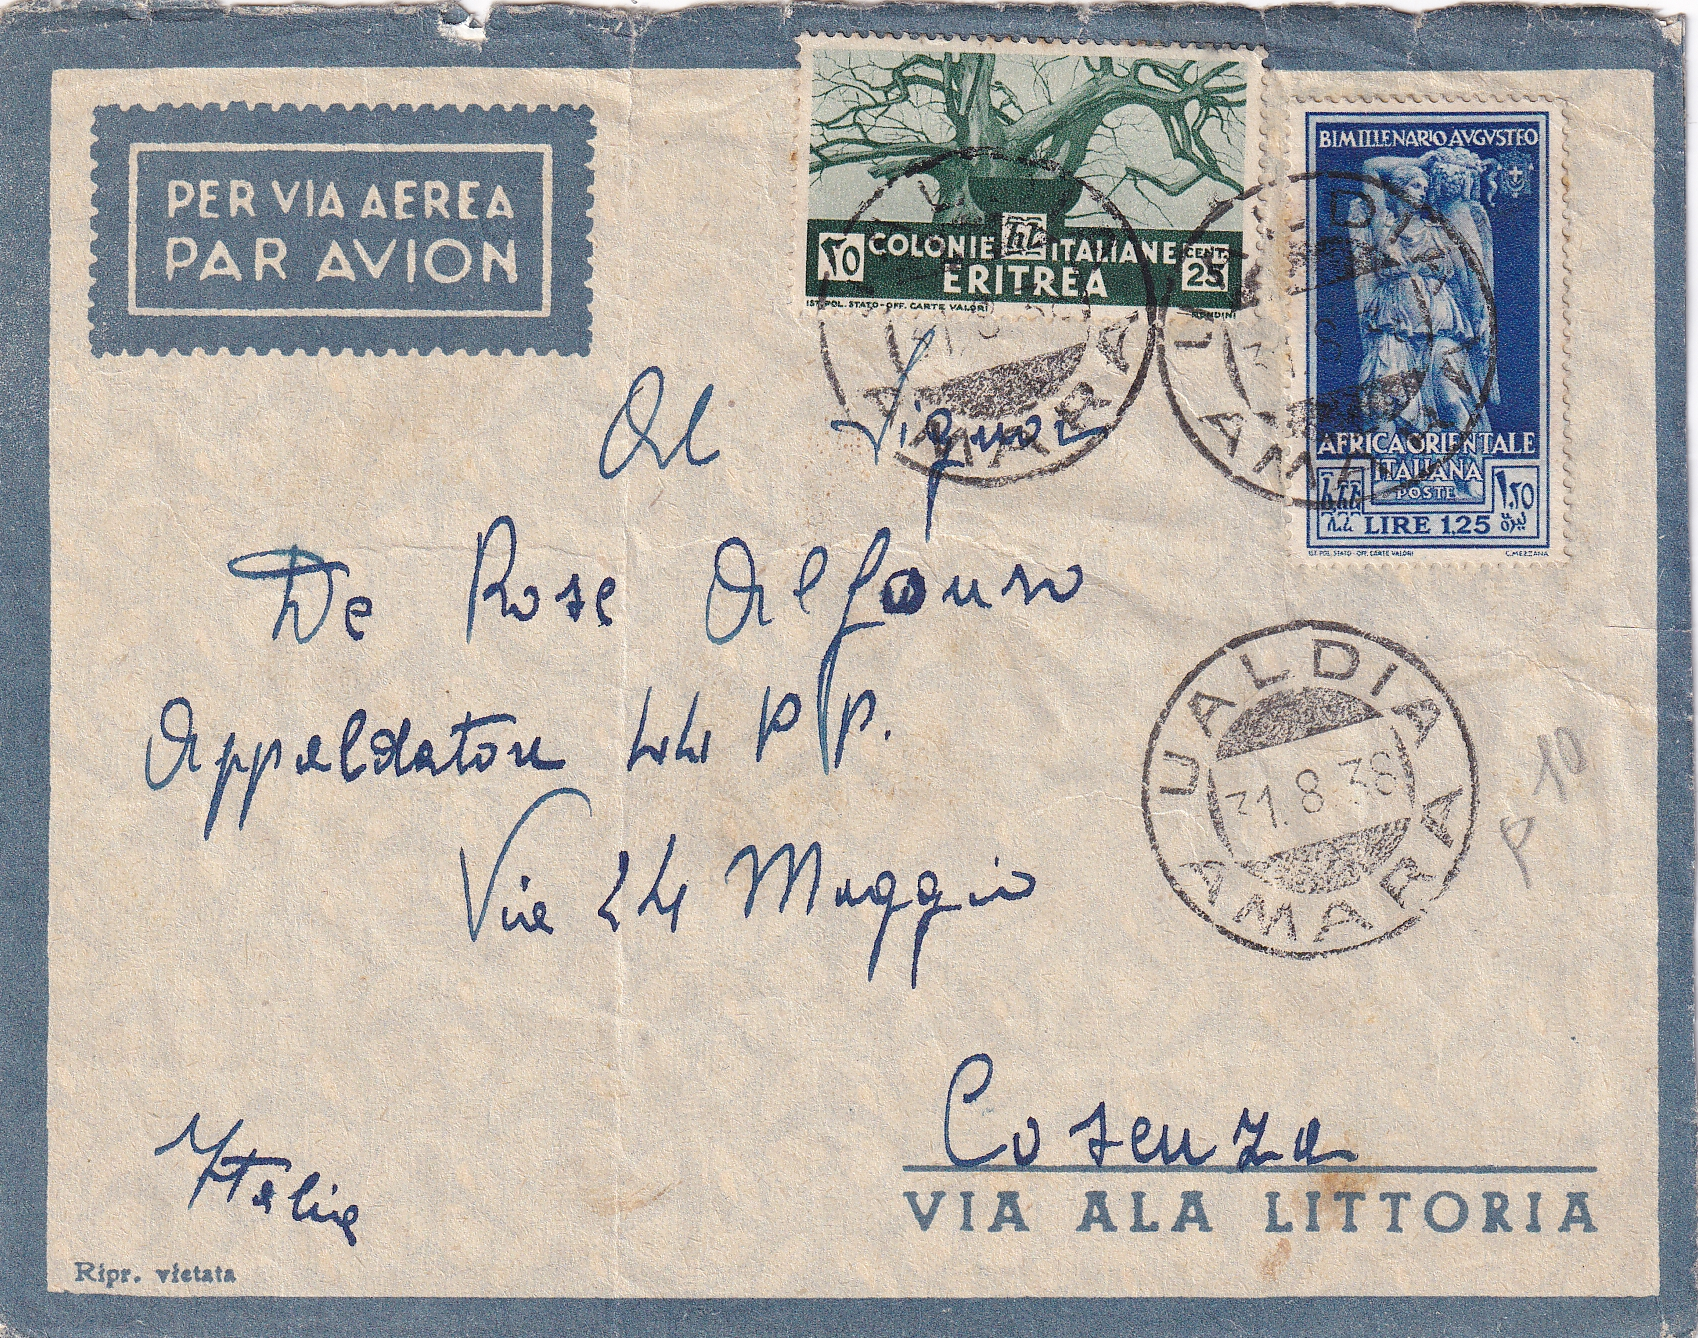 PER VIA AEREA
PAR AVION
٢٥ COLONIE ITALIANE CENT. 25
ERITREA
IST. POL. STATO - OFF. CARTE VALORI MONDINI
BIMILLENARIO AVGVSTEO
AFRICA ORIENTALE
ITALIANA
POSTE
١،٢٥
LIRE 1.25
IST. POL. STATO - OFF. CARTE VALORI C. MEZZANA
Al Signor
De Rose Alfonso
Appaldatore
Via 24 Maggio
Cosenza
Italia
UALDIA
31.8.38
AMARA
UALDIA
31.8.38
AMARA
UALDIA
31.8.38
AMARA
P 10
VIA ALA LITTORIA
Ripr. vietata